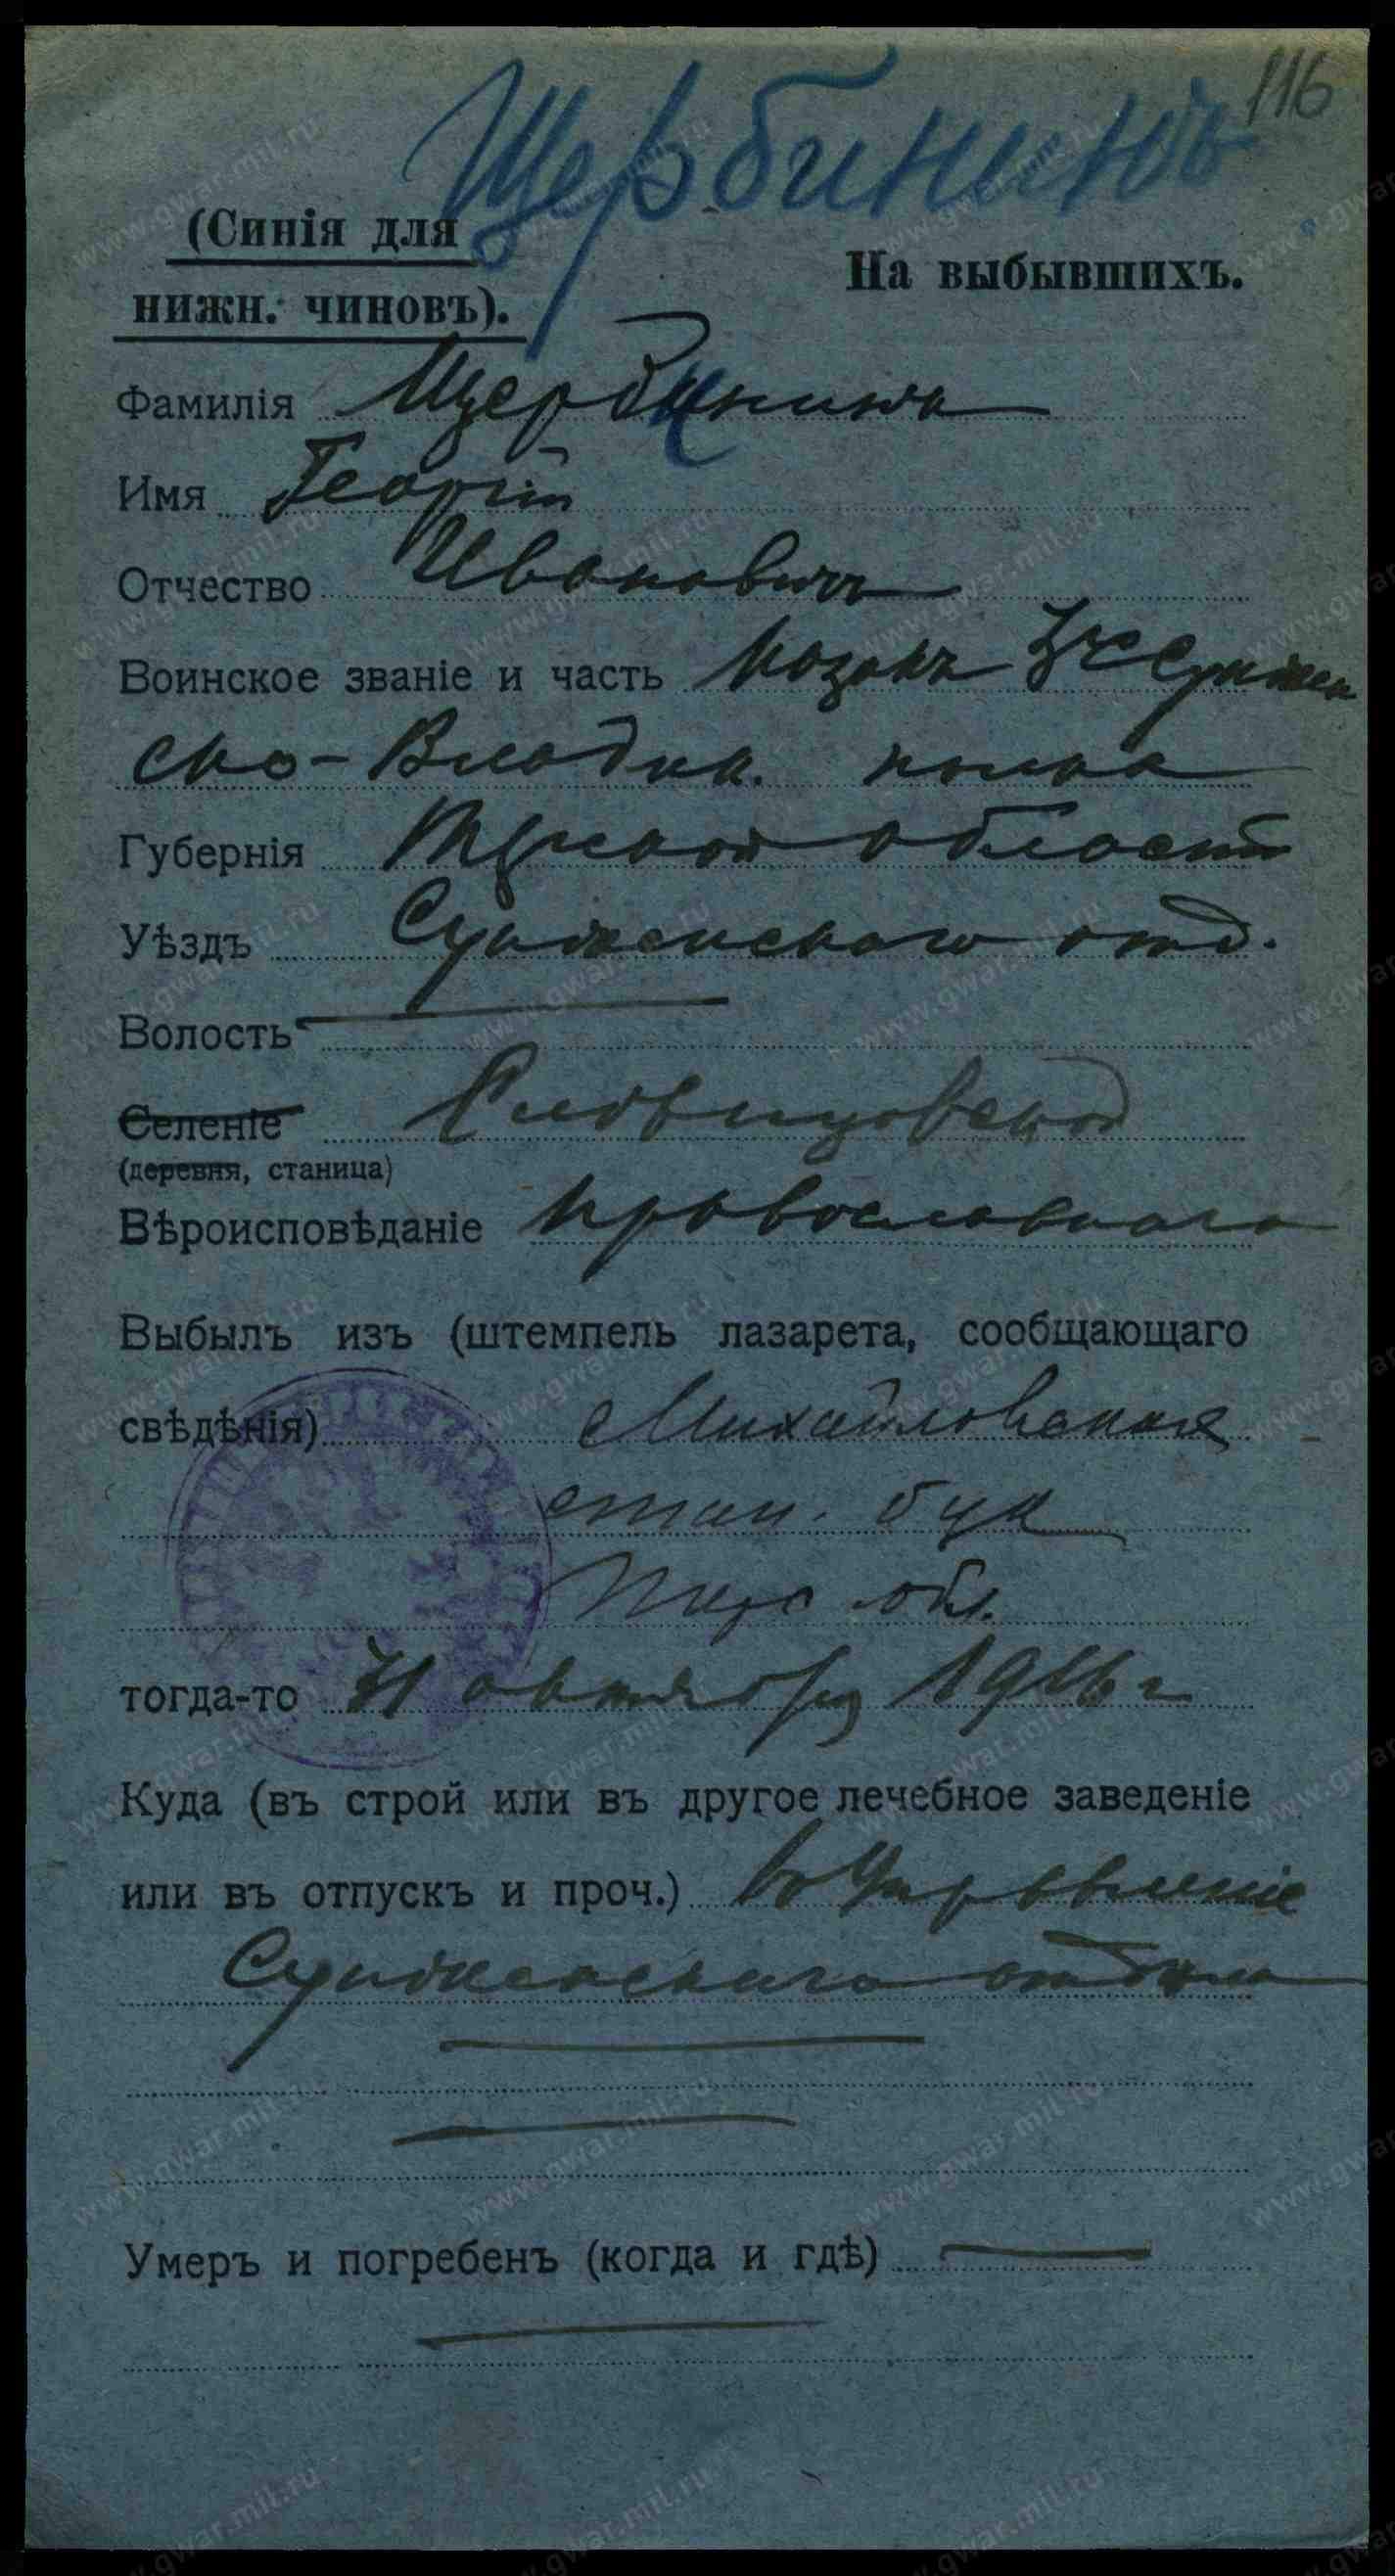 116
Щербининъ
(Синія для
На выбывшихъ.
нижн. чиновъ).
Фамилія Щербининъ
Имя Георгій
Отчество Ивановичъ
Воинское званіе и часть Козакъ 3го Сунжен
ско-Владик. полка
Губернія Терской области
Уѣздъ Сунженскаго отд.
Волость
Селеніе Слѣпцовской
(деревня, станица)
Вѣроисповѣданіе православнаго
Выбылъ изъ (штемпель лазарета, сообщающаго
свѣдѣнія) Михайловская
стан.
Терс обл.
тогда-то 31 октября 1916 г
Куда (въ строй или въ другое лечебное заведеніе
или въ отпускъ и проч.) въ Управленіе
Сунженскаго отдѣла
Умеръ и погребенъ (когда и гдѣ)
www.gwar.mil.ru